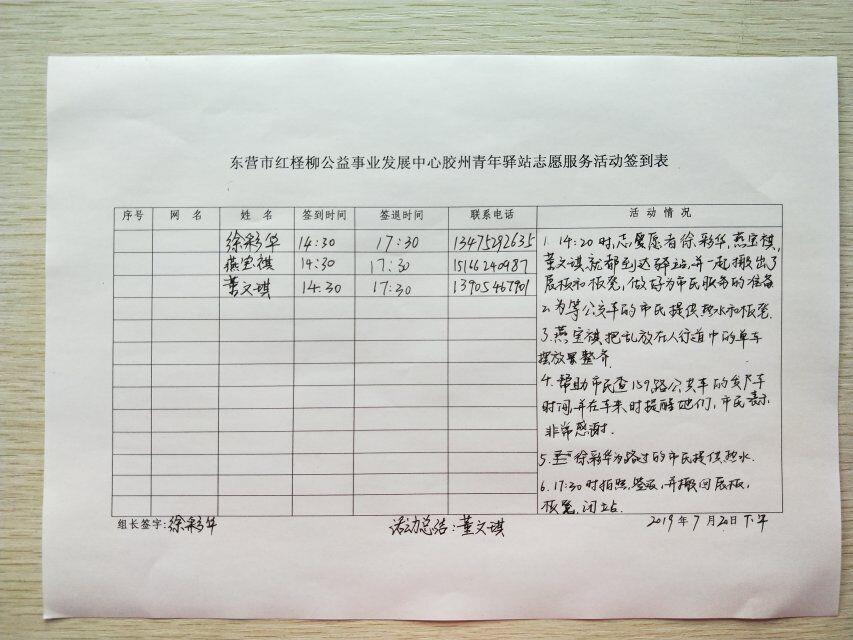 东营市红柽柳公益事业发展中心胶州青年驿站志愿服务活动签到表
序号 网 名 姓 名 签到时间 签退时间 联系电话 活 动 情 况
徐彩华 14:30 17:30 13475292635
燕宝祺 14:30 17:30 15166240987
董文琪 14:30 17:30 13905467901
1. 14:20时,志愿者徐彩华,燕宝祺,
董文琪就都到达驿站,并一起搬出了
展板和板凳,做好为市民服务的准备
2.为等公交车的市民提供热水和板凳.
3.燕宝祺把乱放在人行道中的单车
摆放整齐.
4.帮助市民查159路公交车的发车
时间,并在车来时提醒他们,市民表示
非常感谢.
5.徐彩华为路过的市民提供热水.
6.17:30时拍照,签退,并搬回展板,
板凳,闭站.
组长签字:徐彩华 活动总结:董文琪 2019年7月20日下午